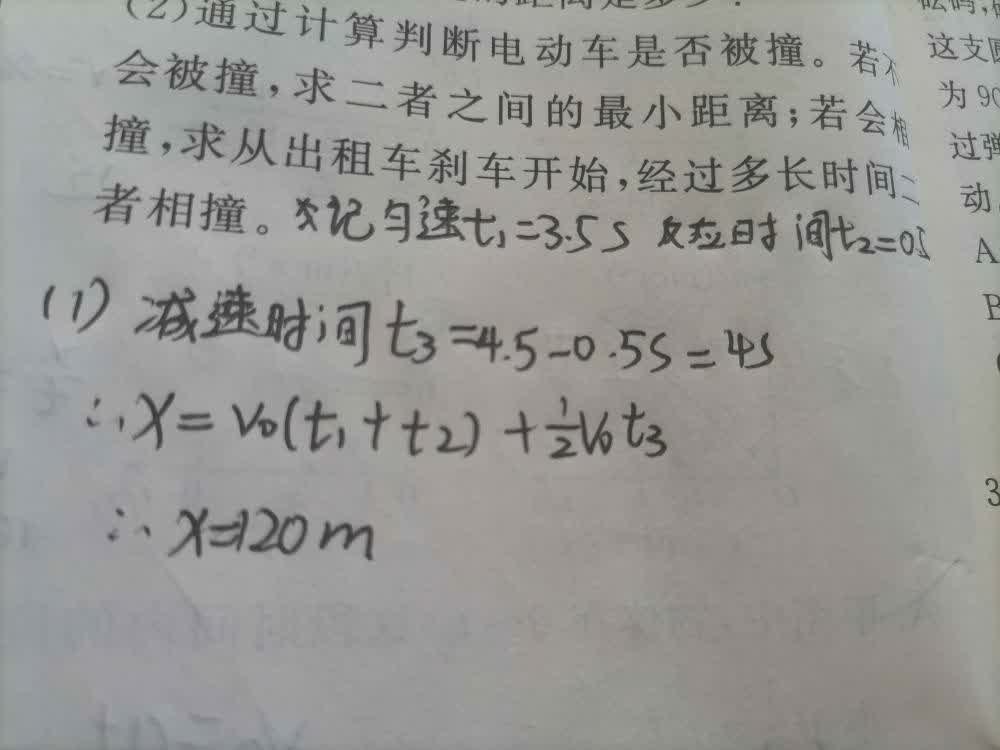 (2)通过计算判断电动车是否被撞。若不
会被撞,求二者之间的最小距离;若会相
撞,求从出租车刹车开始,经过多长时间二
者相撞。 记匀速t₁=3.5s 反应时间t₂=0.5
(1) 减速时间t₃=4.5-0.5s=4s
∴X=V₀(t₁+t₂)+½V₀t₃
∴X=120m
砝码,
这支
为 90
过弹
动
A
B
3